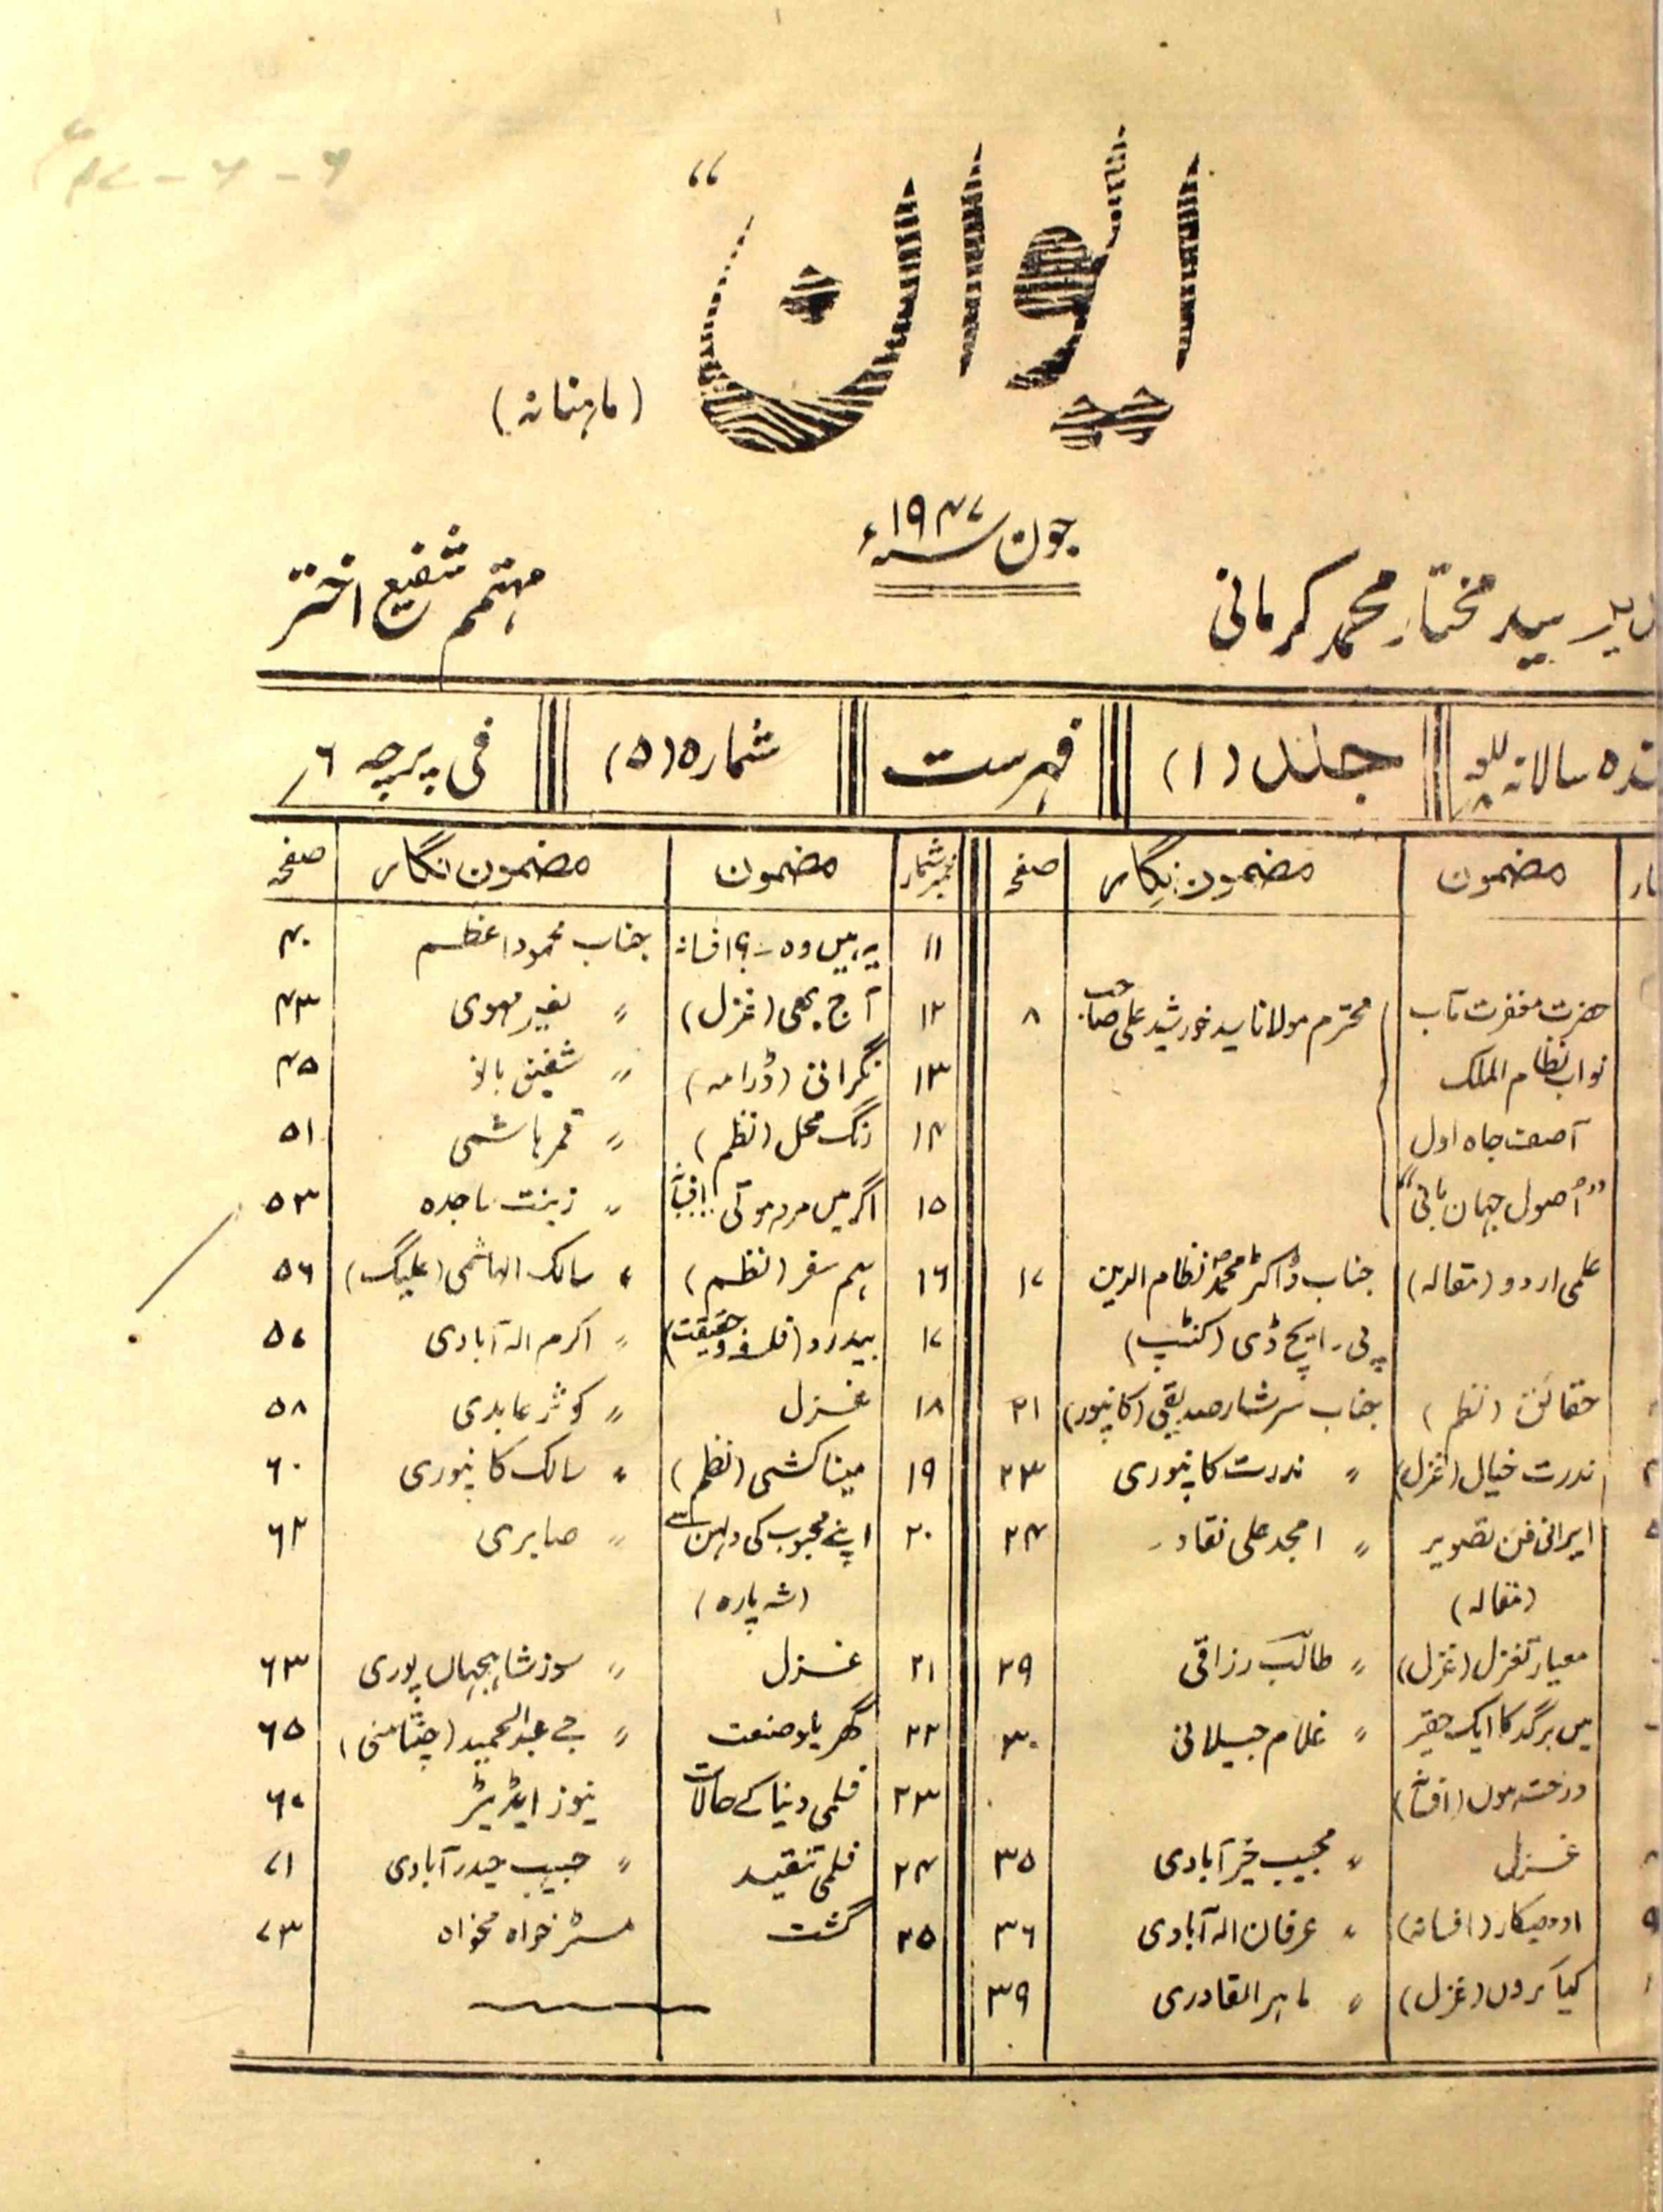 ایوان"
(ماہنامہ)
جون ۱۹۴۷ء
سید مختار محمد کرمانی
مہتمم شفیع اختر
سالانہ
جلد (۱)
فہرست
شمارہ (۵)
فی پرچہ ۶؍
مضمون مضمون نگار صفحہ
حضرت مغفرت مآب محترم مولانا سید خورشید علی صاحب ۸
نواب نظام الملک
آصف جاہ اول
"اُصول جہان بانی"
علمی اردو (مقالہ) جناب ڈاکٹر محمد نظام الدین ۱۷
پی۔ ایچ ڈی (کنٹب)
حقائق (نظم) جناب سرشار صدیقی (کانپور) ۲۱
ندرت خیال (غزل) " ندرت کانپوری ۲۳
ایرانی فن تصویر " امجد علی نقاد ۲۴
(مقالہ)
معیار تغزل (غزل) " طالب رزاقی ۲۹
میں برگد کا ایک حقیر " غلام جیلانی ۳۰
درخت ہوں (افسانہ)
غزل " مجیب خیرآبادی ۳۵
(افسانہ) " عرفان الہ آبادی ۳۶
کیا کروں (غزل) " ماہر القادری ۳۹
نمبر شمار مضمون مضمون نگار صفحہ
۱۱ یہ ہیں وہ ـ؟ افسانہ جناب محمود اعظم ۴۰
۱۲ آج بھی (غزل) " ۴۳
۱۳ نگرانی (ڈرامہ) " شفیق بانو ۴۵
۱۴ رنگ محل (نظم) " قمر ہاشمی ۵۱
۱۵ اگر میں مرد ہوتی!! افسانہ " زینت ساجدہ ۵۳
۱۶ ہم سفر (نظم) " سالک الہاشمی (علیگ) ۵۶
۱۷ بیدرد (حقیقت) " اکرم الہ آبادی ۵۷
۱۸ غزل " کوثر عابدی ۵۸
۱۹ میناکشی (نظم) " سالک کانپوری ۶۰
۲۰ اپنے محبوب کی دلہن سے " صابری ۶۲
(شہ پارہ)
۲۱ غزل " سوز شاہجہاں پوری ۶۳
۲۲ گھریلو صنعت " جے عبدالحمید (چنتامنی) ۶۵
۲۳ فلمی دنیا کے حالات نیوز ایڈیٹر ۶۷
۲۴ فلمی تنقید " حبیب حیدرآبادی ۷۱
۲۵ گشت مسٹر خواہ مخواہ ۷۳